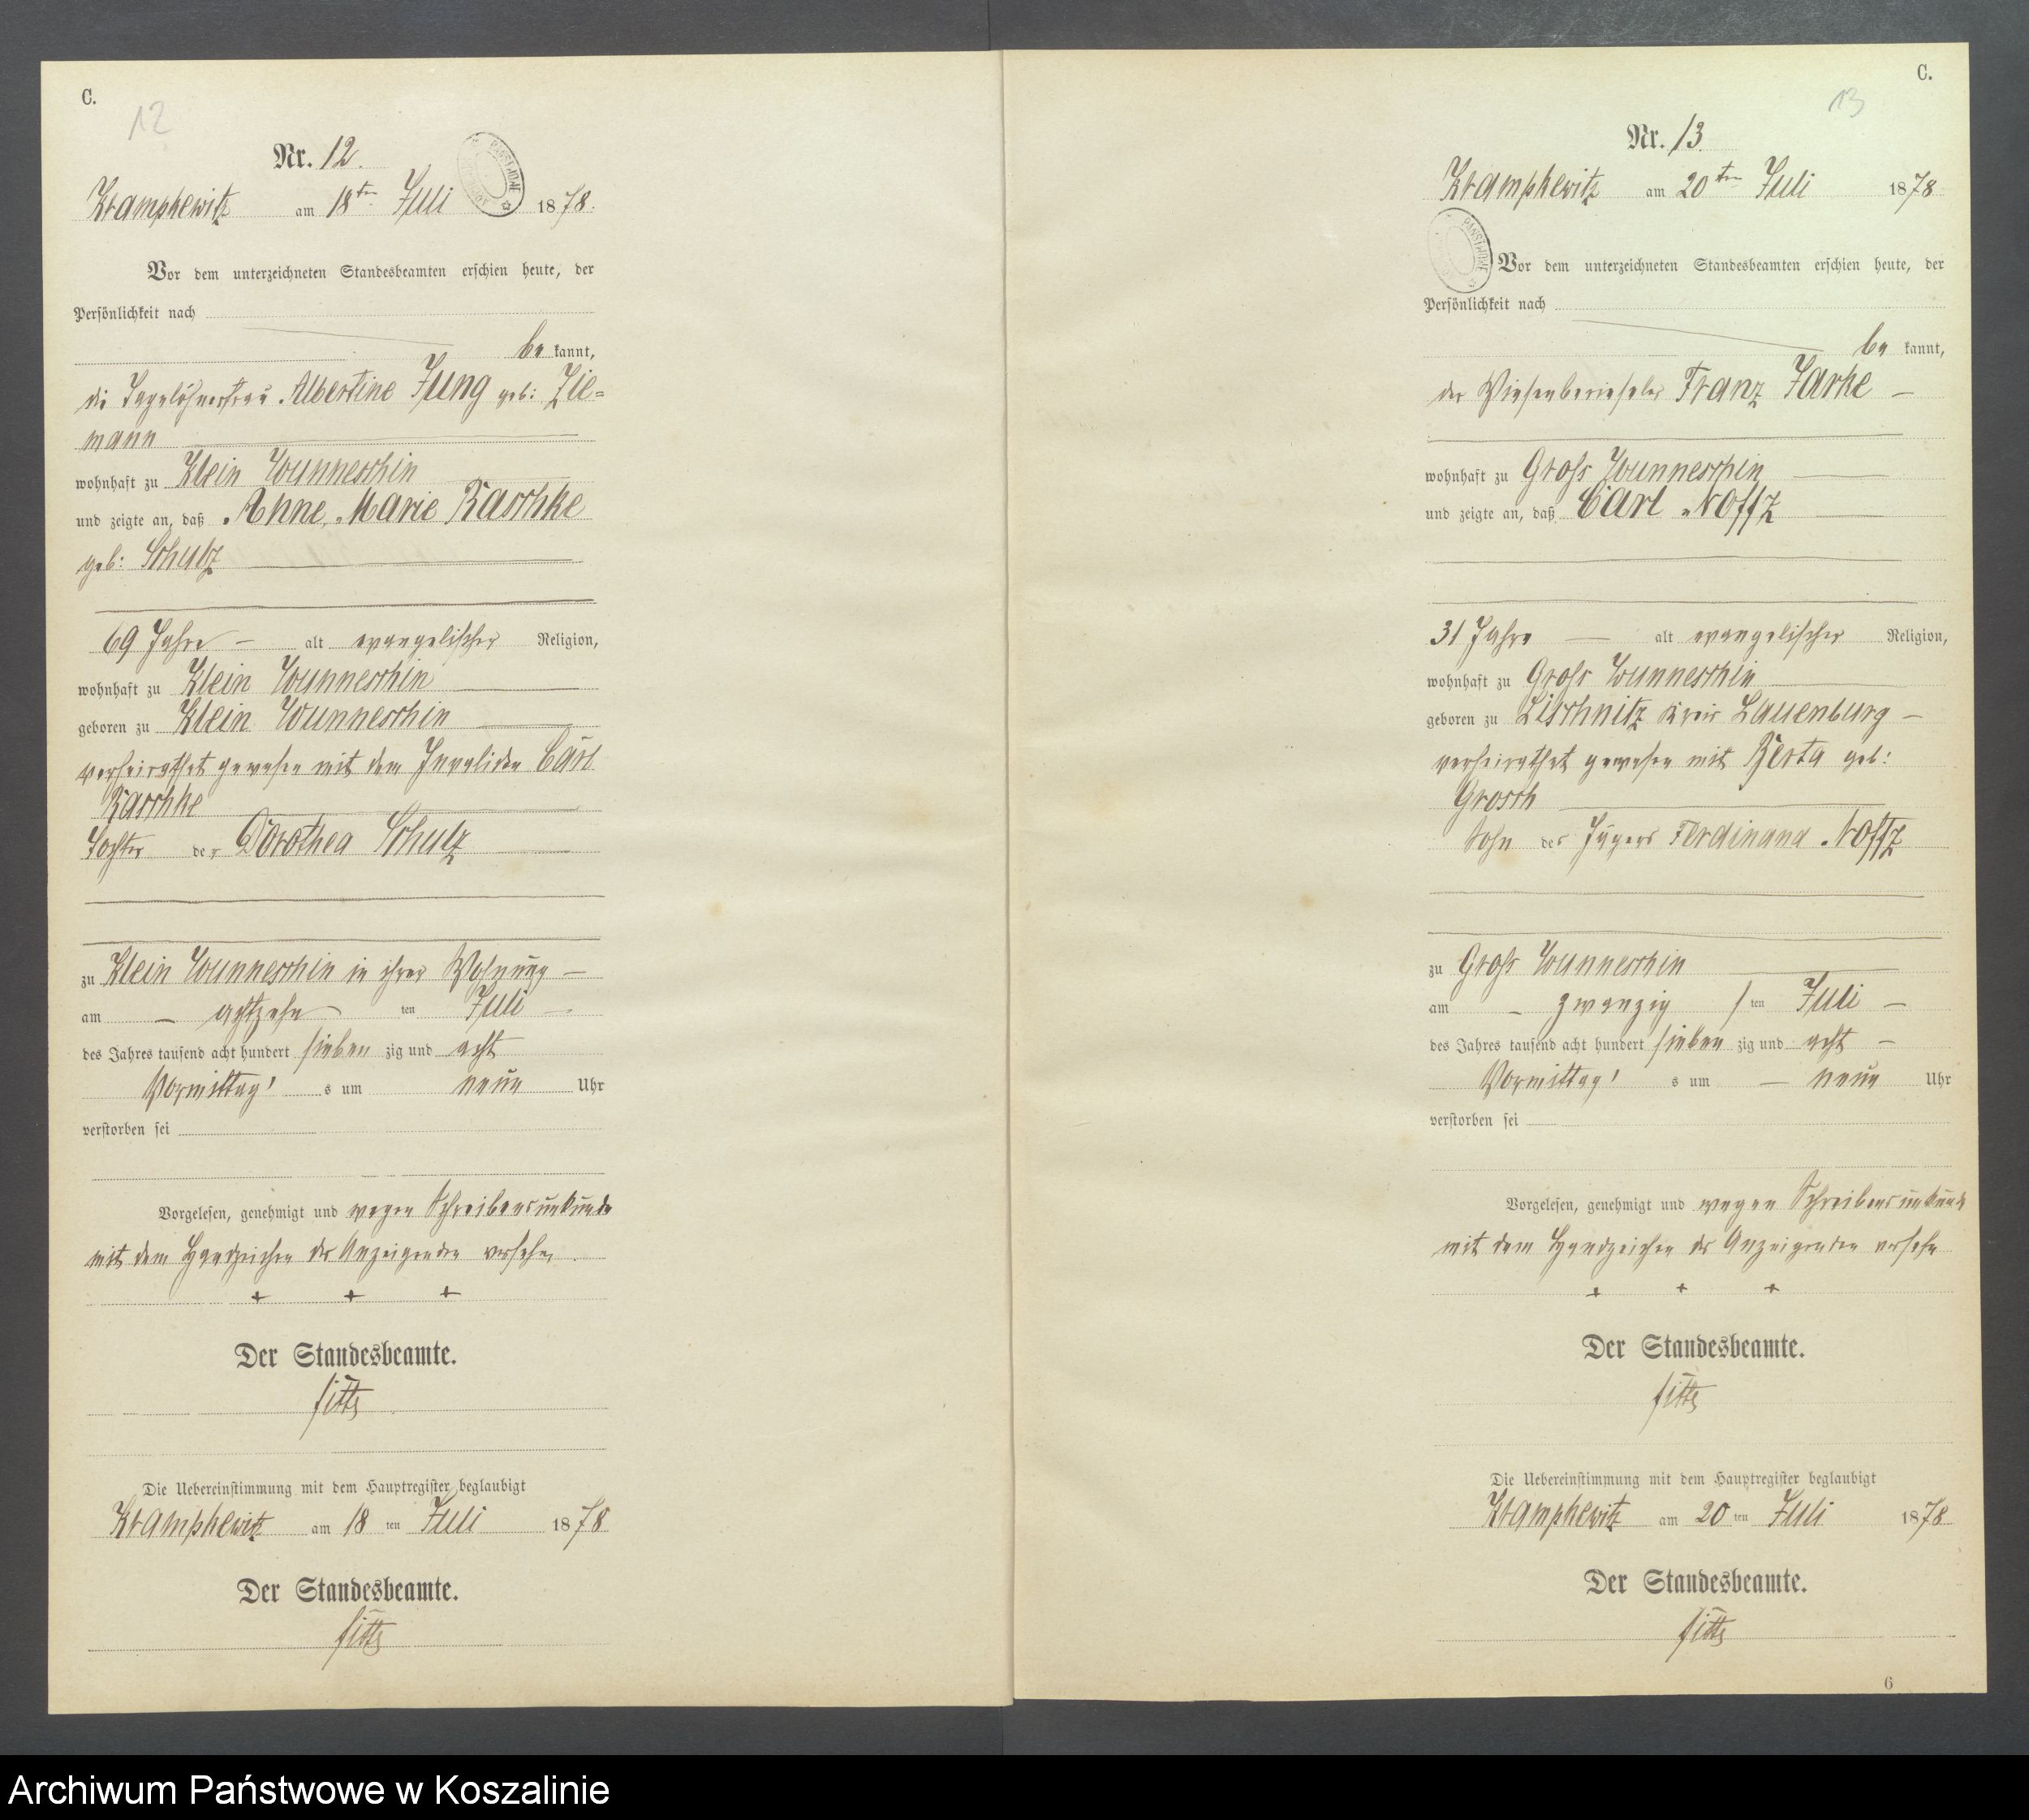 C.
12
Nr. 12.
Krampkewitz am 18ten Juli 1878.
Vor dem unterzeichneten Standesbeamten erschien heute, der
Persönlichkeit nach
be kannt,
die Tagelöhnerfrau Albertine Jung geb: Zie=
mann
wohnhaft zu Klein Wunneschin
und zeigte an, daß Anne Marie Raschke
geb: Schulz
69 Jahre alt evangelischer Religion,
wohnhaft zu Klein Wunneschin
geboren zu Klein Wunneschin
verheirathet gewesen mit dem Invaliden Carl
Raschke
Tochter der Dorothea Schulz
zu Klein Wunneschin in ihrer Wohnung
am achtzehn ten Juli
des Jahres tausend acht hundert sieben zig und acht
Vormittag's um neun Uhr
verstorben sei
Vorgelesen, genehmigt und wegen Schreibensunkunde
mit dem Handzeichen der Anzeigenden versehen.
+ + +
Der Standesbeamte.
Die Uebereinstimmung mit dem Hauptregister beglaubigt
Krampkewitz am 18 ten Juli 1878
Der Standesbeamte.
C.
13
Nr. 13.
Krampkewitz am 20ten Juli 1878
PANSTWOWE
Vor dem unterzeichneten Standesbeamten erschien heute, der
Persönlichkeit nach
be kannt,
der Wiesenberieseler Franz Jarke
wohnhaft zu Gross Wunneschin
und zeigte an, daß Carl Noffz
31 Jahre alt evangelischer Religion,
wohnhaft zu Gross Wunneschin
geboren zu Lischnitz Kreis Lauenburg
verheirathet gewesen mit Berta geb:
Grosch
Sohn des Jägers Ferdinand Noffz
zu Gross Wunneschin
am zwanzig s ten Juli
des Jahres tausend acht hundert sieben zig und acht
Vormittag's um neun Uhr
verstorben sei
Vorgelesen, genehmigt und wegen Schreibensunkunde
mit dem Handzeichen des Anzeigenden versehn
+ + +
Der Standesbeamte.
Die Uebereinstimmung mit dem Hauptregister beglaubigt
Krampkewitz am 20 ten Juli 1878
Der Standesbeamte.
6
Archiwum Państwowe w Koszalinie